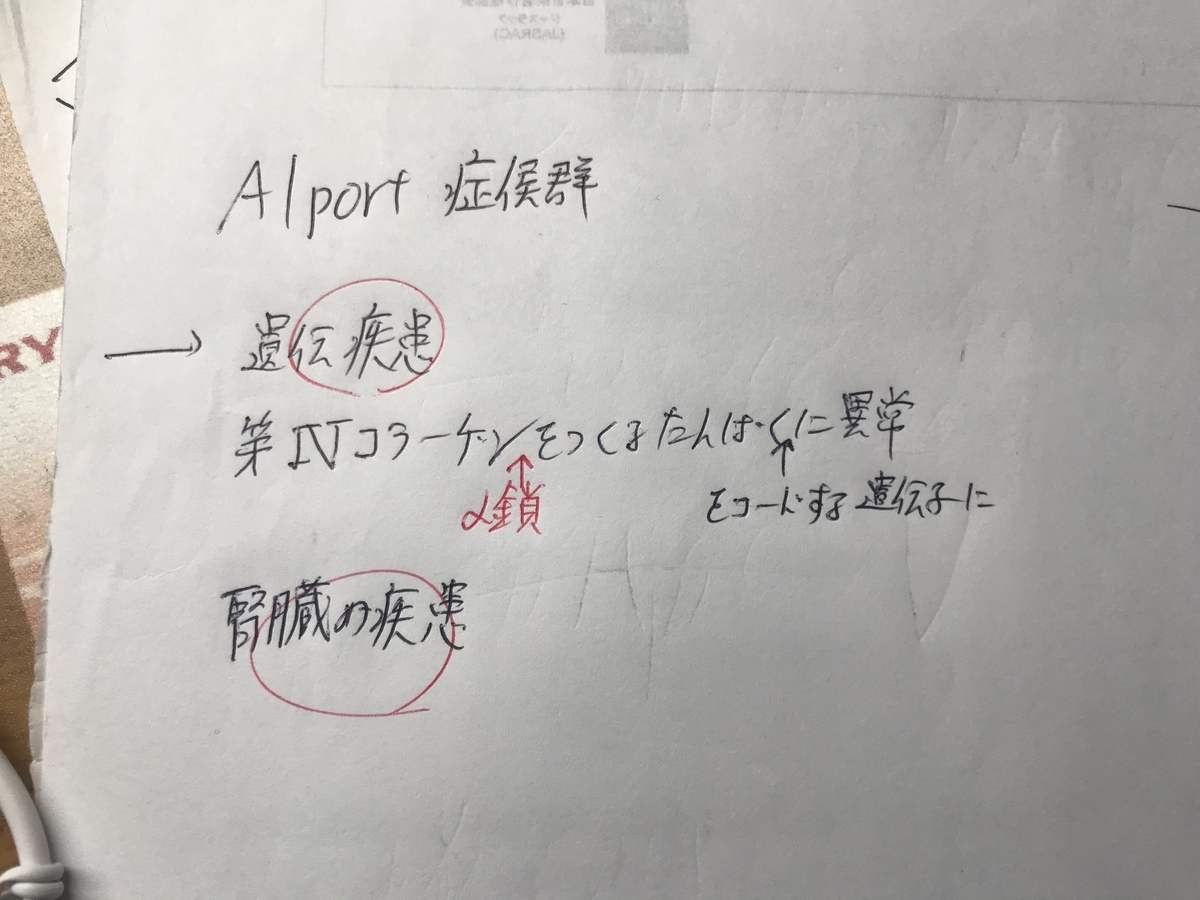 (JASRAC)
RY
Alport 症侯群
→ 遺伝疾患
第Ⅳコラーゲンをつくるたんぱくに異常
↑ ↑
α鎖 をコードする遺伝子に
腎臓の疾患